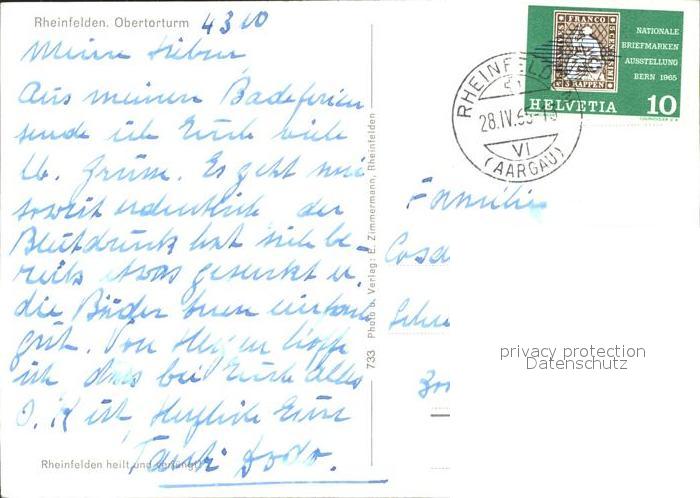 Rheinfelden. Obertorturm 4310
Meine Lieben
Aus meinen Badeferien
sende ich Euch viele
lb. Grüsse. Es geht mir
soweit ordentlich der
Blutdruck hat sich be-
reits etwas gesenkt u.
die Bäder tun einfach
gut. Von Herzen hoffe
ich dass bei Euch alles
O.K ist, Herzliche Grüsse
Tante Dodo.
Rheinfelden heilt und verjüngt
733 Photo u. Verlag: E. Zimmermann, Rheinfelden
NATIONALE
BRIEFMARKEN
AUSSTELLUNG
BERN 1965
FRANCO
3 RAPPEN
HELVETIA 10
RHEINFELDEN
28.IV.65-
VI
(AARGAU)
Familie
privacy protection
Datenschutz